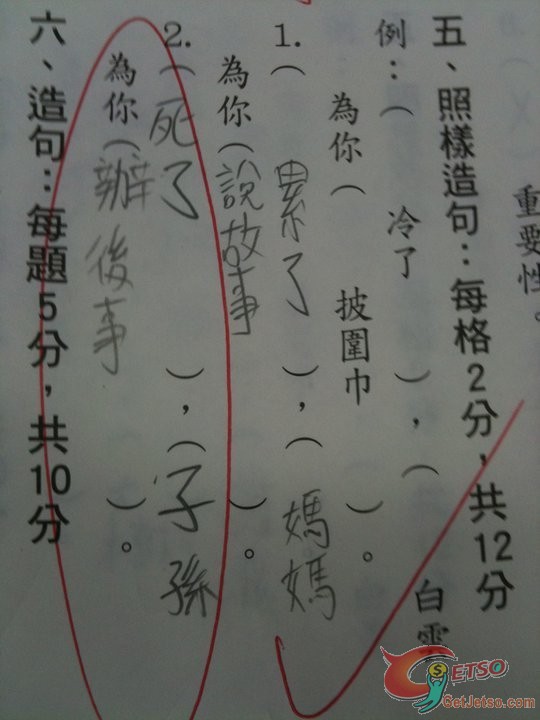 重要性。
五、照樣造句：每格2分，共12分
例：（冷了），（白雲
為你（披圍巾）。
1.（累了），（媽媽
為你（說故事）。
2.（死了），（子孫
為你（辦後事）。
六、造句：每題5分，共10分
GETSO
GetJetso.com